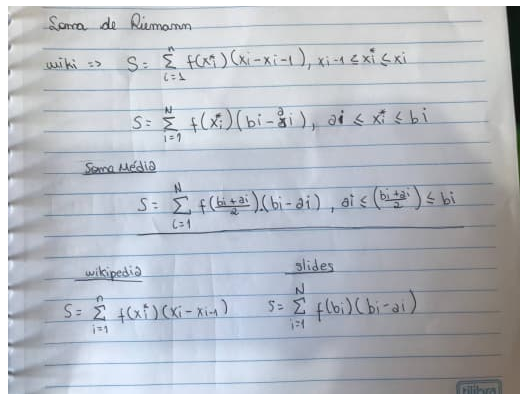 Soma de Riemann
wiki => S = Σ_{i=1}^{n} f(xi*)(xi-xi-1), xi-1 ≤ xi* ≤ xi
S = Σ_{i=1}^{N} f(xi*)(bi-ai), ai ≤ xi* ≤ bi
Soma Média
S = Σ_{i=1}^{N} f((bi+ai)/2).(bi-ai), ai ≤ ((bi+ai)/2) ≤ bi
wikipedia
S = Σ_{i=1}^{n} f(xi*)(xi-xi-1)
slides
S = Σ_{i=1}^{N} f(bi)(bi-ai)
tilibra